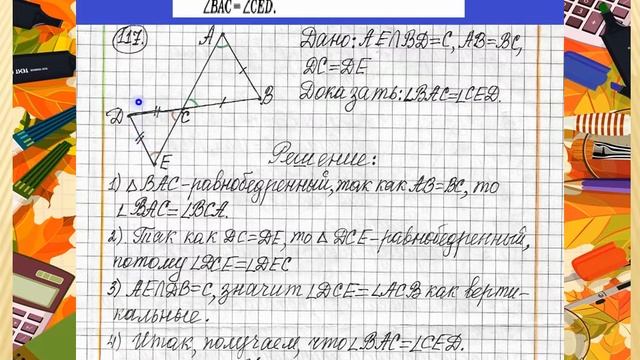 ∠BAC = ∠CED.
117.
A
B
D
C
E
Дано: AE∩BD=C, AB=BC,
DC=DE
Доказать: ∠BAC=∠CED.
Решение:
1) △BAC-равнобедренный, так как AB=BC, то
∠BAC=∠BCA.
2) Так как DC=DE, то △DCE-равнобедренный,
потому ∠DCE=∠DEC
3) AE∩DB=C, значит ∠DCE=∠ACB как верти-
кальные.
4) Итак, получаем, что ∠BAC=∠CED.